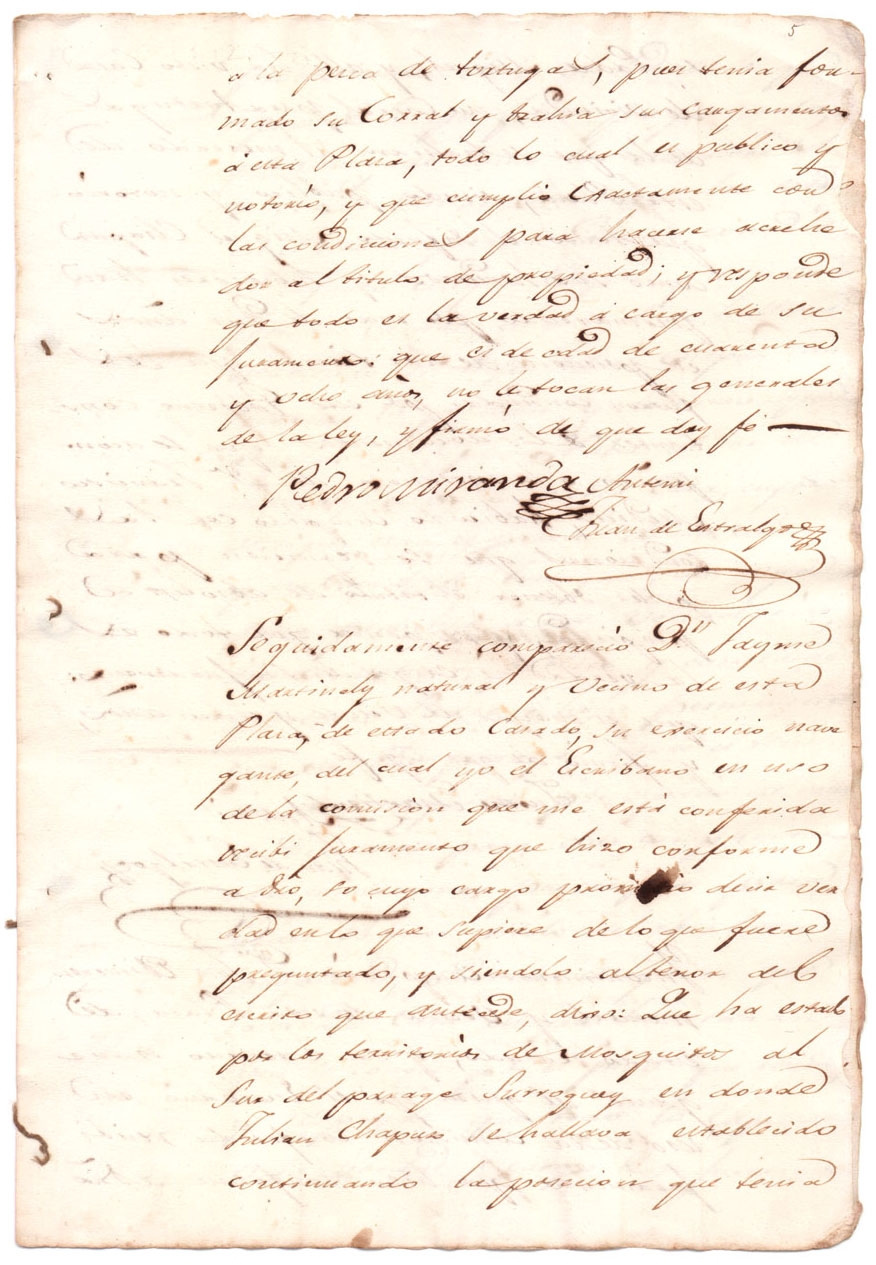 5
a la pesca de tortugas, pues tenia for-
mado su Corral y trahia sus cargamentos
á esta Plaza, todo lo cual es publico y
notorio, y que cumplio exactamente con
las condiciones para hacerse acrehe
dor al titulo de propiedad; y responde
que todo es la verdad á cargo de su
Juramento: que es de edad de cuarenta
y ocho años, no le tocan las generales
de la ley, y firmó de que doy fé
Pedro Miranda Antemi
Juan de Estralgo
Seguidamente compareció Dn Jayme
Martinely natural y vecino de esta
Plaza, de estado Casado, su exercicio nave
gante, del cual yo el Escribano en uso
de la comision que me está conferida
recibi Juramento que hizo conforme
a dro, so cuyo cargo prometio decir ver
dad en lo que supiere de lo que fuere
preguntado, y siendolo al tenor del
escrito que antecede, dixo: Que ha estado
por los territorios de Mosquitos al
Sur del parage Surroguey en donde
Julian Chapuz se hallava establecido
continuando la posecion que tenia